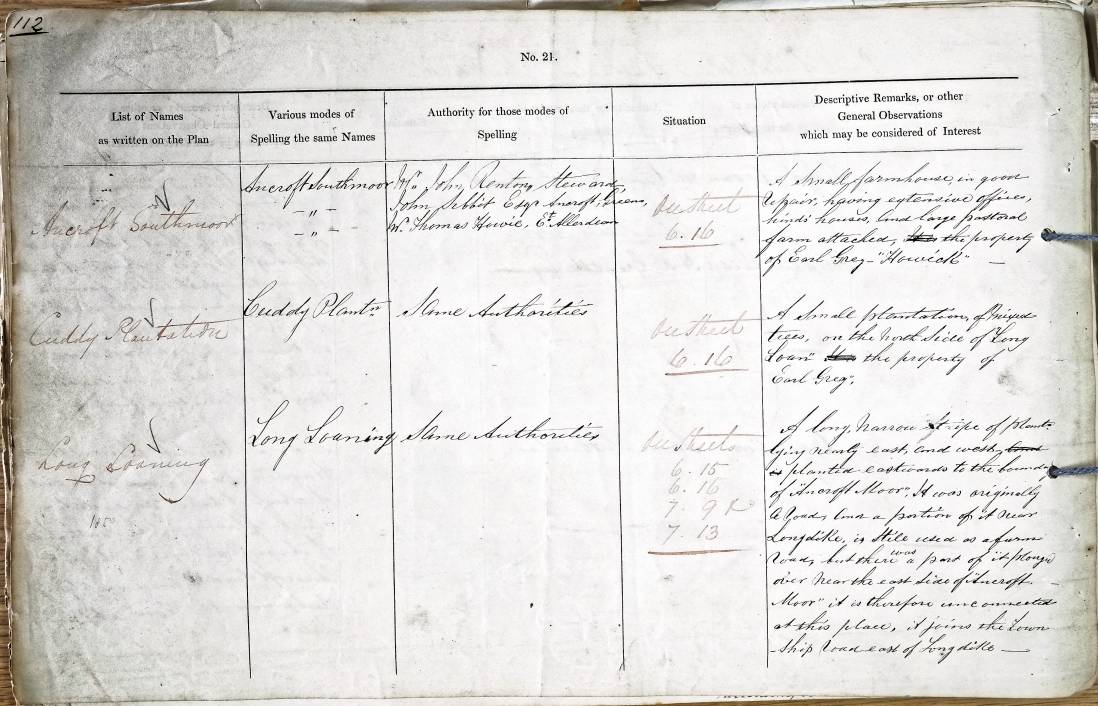 112
No. 21.
List of Names
as written on the Plan
Various modes of
Spelling the same Names
Authority for those modes of
Spelling
Situation
Descriptive Remarks, or other
General Observations
which may be considered of Interest
Ancroft Southmoor
Ancroft Southmoor
– „ –
– „ –
Mr. John Renton, Steward,
John Sibbit Esqr Ancroft, Greens,
Mr. Thomas Howie, Et. Allerdean
On Sheet
6. 16
A Small farmhouse, in good
repair, having extensive offices,
hinds houses, and large pastoral
farm attached, It is the property
of Earl Grey – "Howick" –
Cuddy Plantation
Cuddy Plantn
Same Authorities
On Sheet
6. 16
A Small plantation, of Mixed
trees, on the North Side of "Long
Loan" the property of
Earl Grey".
Long Loaning
Long Loaning
Same Authorities
On Sheets
6. 15
6. 16
7. 9
7. 13
A long, Narrow Stripe of plant-
lying nearly east, and west, and
is planted eastwards to the boundy
of "Ancroft Moor". It was originally
a road, and a portion of it near
Longdike, is Still used as a farm
road, but there was a part of it plough'd
over Near the east Side of "Ancroft
Moor" it is therefore unconnected
at this place, it joins the Town
-Ship road east of Longdike —